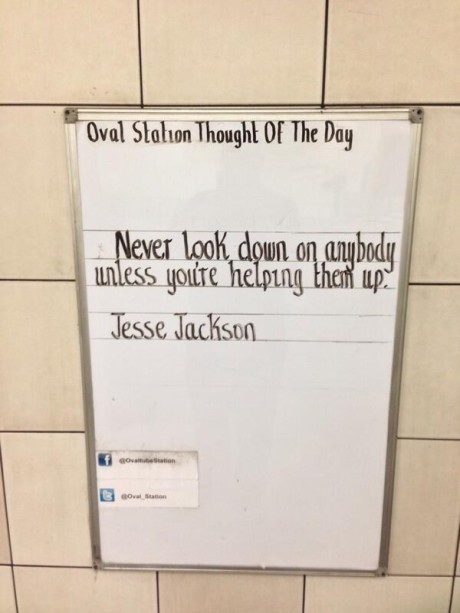 Oval Station Thought Of The Day
Never look down on anybody
unless you're helping them up.
Jesse Jackson
@OvaltubeStation
@Oval_Station